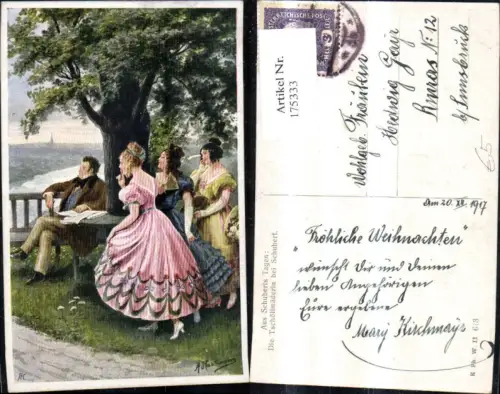 Artikel Nr.
175333
3
Wohlgeb. Fräulein
Hedwig
Amras Nr. 12
b/Innsbruck
Am 20. XII. 1917
„Fröhliche Weihnachten"
wünscht Dir und deinen
lieben Angehörigen
Eure ergebene
Mary Kirchmayr
Aus Schuberts Tagen:
Die Tschöllmäderln bei Schubert.
B. K. W. II